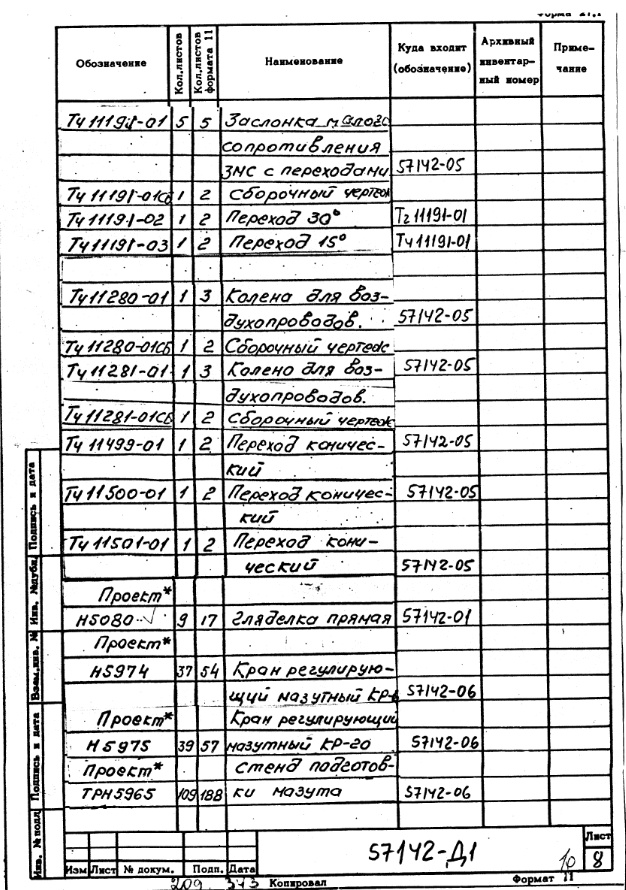 Форма 21,1
Обозначение Кол.листов Кол.листов формата 11 Наименование Куда входит (обозначение) Архивный инвентар-ный номер Приме-чание
Тч 11191-01 5 5 Заслонка малого
сопротивления
ЗМС с переходами 57142-05
Тч 11191-01СБ 1 2 Сборочный чертеж
Тч 11191-02 1 2 Переход 30° Тч 11191-01
Тч 11191-03 1 2 Переход 15° Тч 11191-01
Тч 11280-01 1 3 Колена для воз-
духопроводов. 57142-05
Тч 11280-01СБ 1 2 Сборочный чертеж
Тч 11281-01 1 3 Колено для воз- 57142-05
духопроводов.
Тч 11281-01СБ 1 2 Сборочный чертеж
Тч 11499-01 1 2 Переход коничес- 57142-05
кий
Тч 11500-01 1 2 Переход коничес- 57142-05
кий
Тч 11501-01 1 2 Переход кони-
ческий 57142-05
Проект*
Н5080 9 17 Гляделка прямая 57142-01
Проект*
Н5974 37 54 Кран регулирую-
щий мазутный КР- 57142-06
Проект* Кран регулирующий
Н5975 39 57 мазутный КР-20 57142-06
Проект* Стенд подготов-
ТРН5965 109 188 ки мазута 57142-06
Инв. № подл. Подпись и дата Взам.инв. № Инв. №дубл. Подпись и дата
57142-Д1
Лист
10 8
Изм Лист № докум. Подп. Дата
209 343 Копировал Формат 11